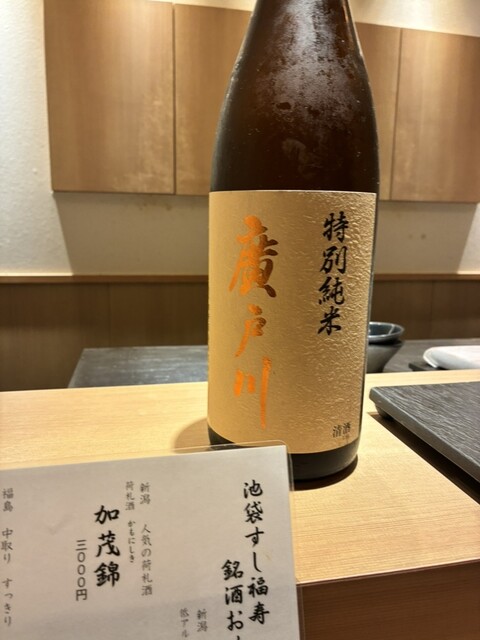 特別純米
廣戸川
清酒
池袋すし福寿
銘酒お
新潟
低アル
新潟 人気の荷札酒
荷札酒 かもにしき
加茂錦
三〇〇〇円
福島 中取り すっきり